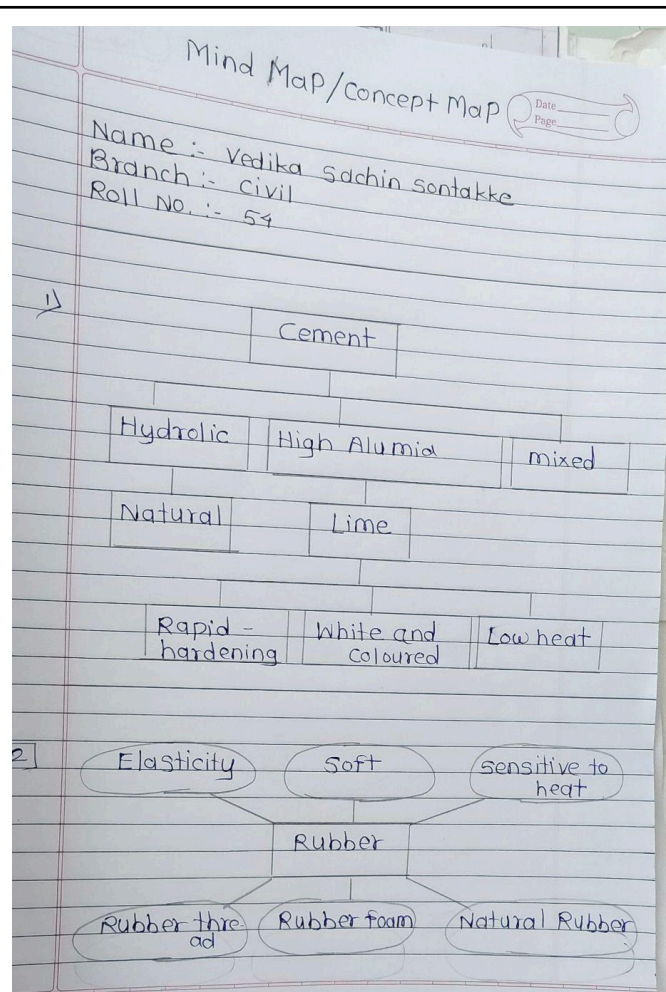 Mind Map/Concept Map
Date
Page
Name :- Vedika Sachin Sontakke
Branch :- civil
Roll No. :- 54
1)
Cement
Hydrolic
High Alumia
mixed
Natural
Lime
Rapid -
hardening
White and
coloured
Low heat
2
Elasticity
Soft
Sensitive to
heat
Rubber
Rubber thre-
ad
Rubber foam
Natural Rubber